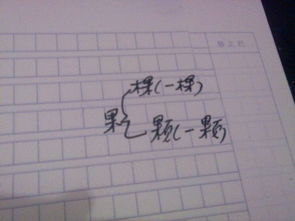 棵(一棵)
果
颗(一颗)